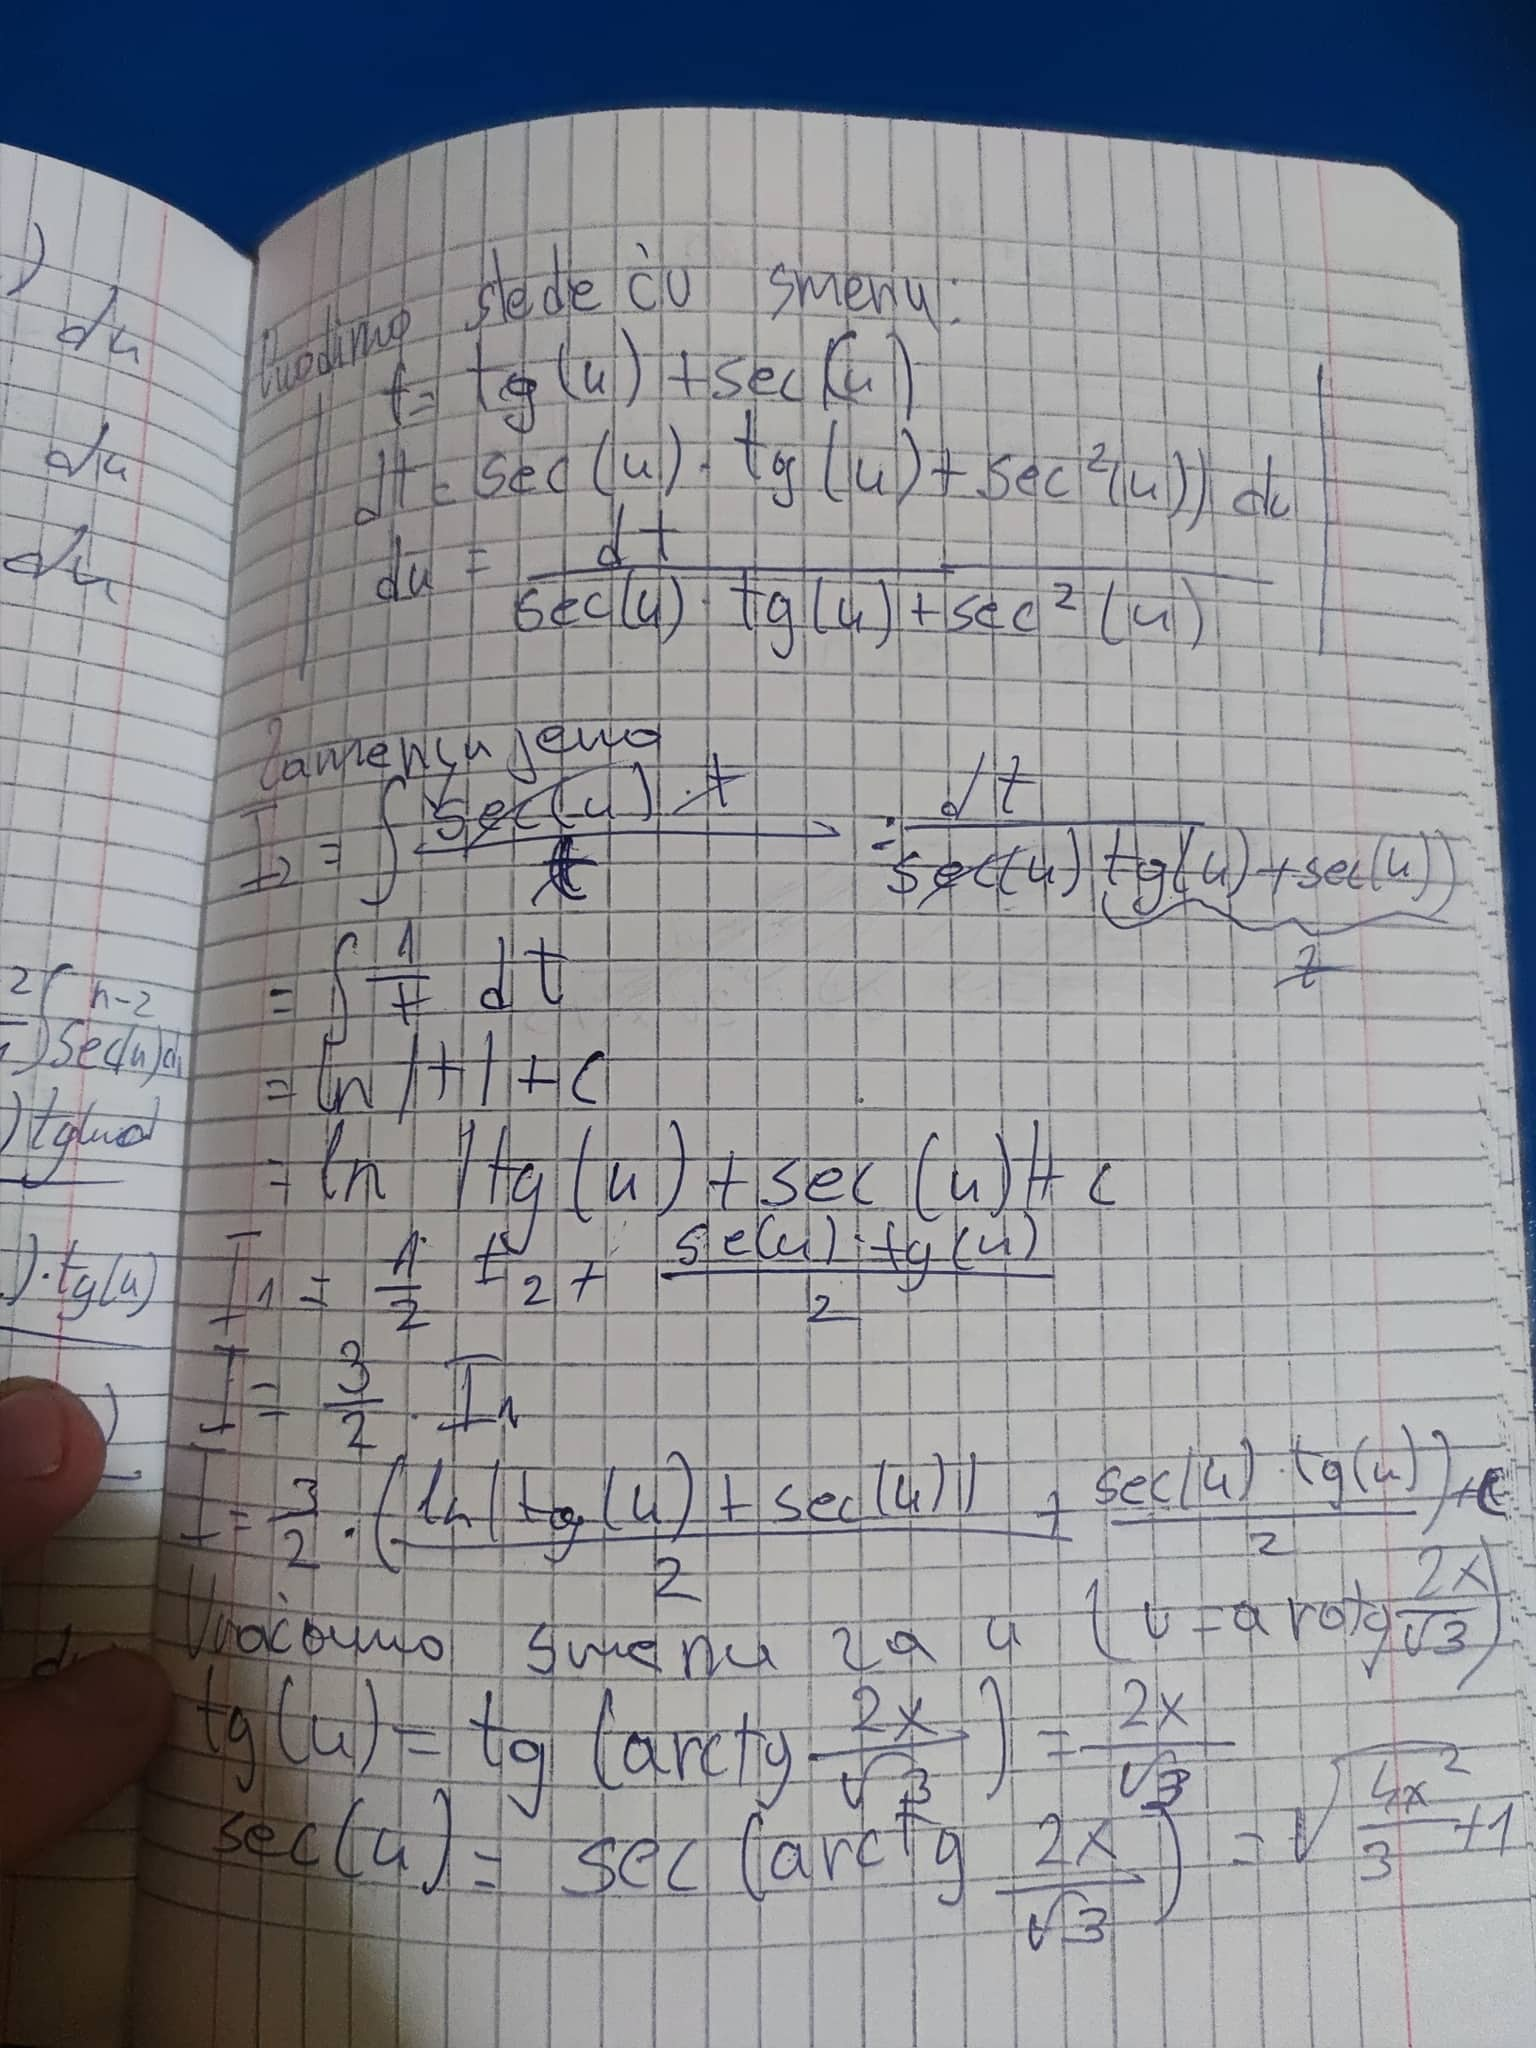 du
du
du
n-2
sec(u)du
) tg(u)
).tg(u)
)
Uvodimo sledeću smenu:
t= tg(u)+sec(u)
dt = sec(u)·tg(u)+sec²(u)) du
du = dt / sec(u)·tg(u)+sec²(u)
Zamenjujemo
I₂ = ∫ sec(u)·t / t · dt / sec(u) tg(u)+sec(u))
t
= ∫ 1/t dt
= ln|t|+c
= ln |tg(u)+sec(u)|+c
I₁ = 1/2 I₂ + se(u)·tg(u) / 2
I = 3/2 · I₁
I = 3/2 · (ln|tg(u)+sec(u)| / 2 + sec(u)·tg(u) / 2)+c
Vraćamo smenu za u (u=arctg 2x/√3)
tg(u) = tg (arctg 2x/√3) = 2x/√3
sec(u) = sec (arctg 2x/√3) = √(4x²/3 +1)